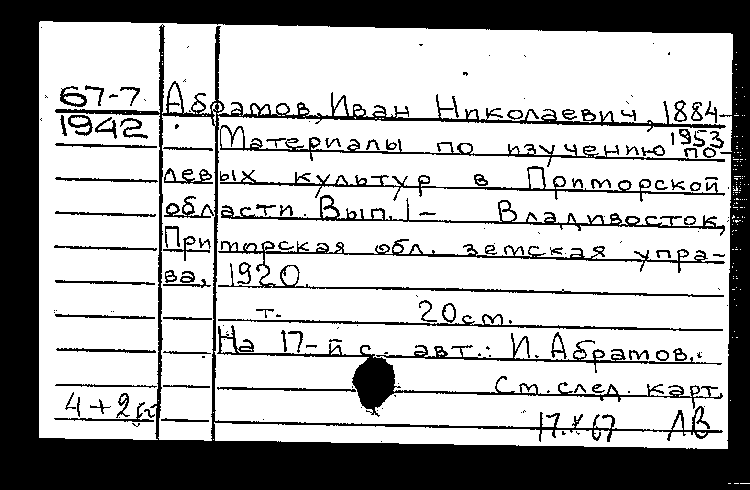 67-7 Абрамов, Иван Николаевич, 1884-
1942 Материалы по изучению 1953 по-
левых культур в Приморской
области. Вып. 1- Владивосток,
Приморская обл. земская упра-
ва, 1920.
т. 20 см.
На 17-й с. авт.: И. Абрамов.
См. след. карт.
4+2
17.X.67 ЛВ